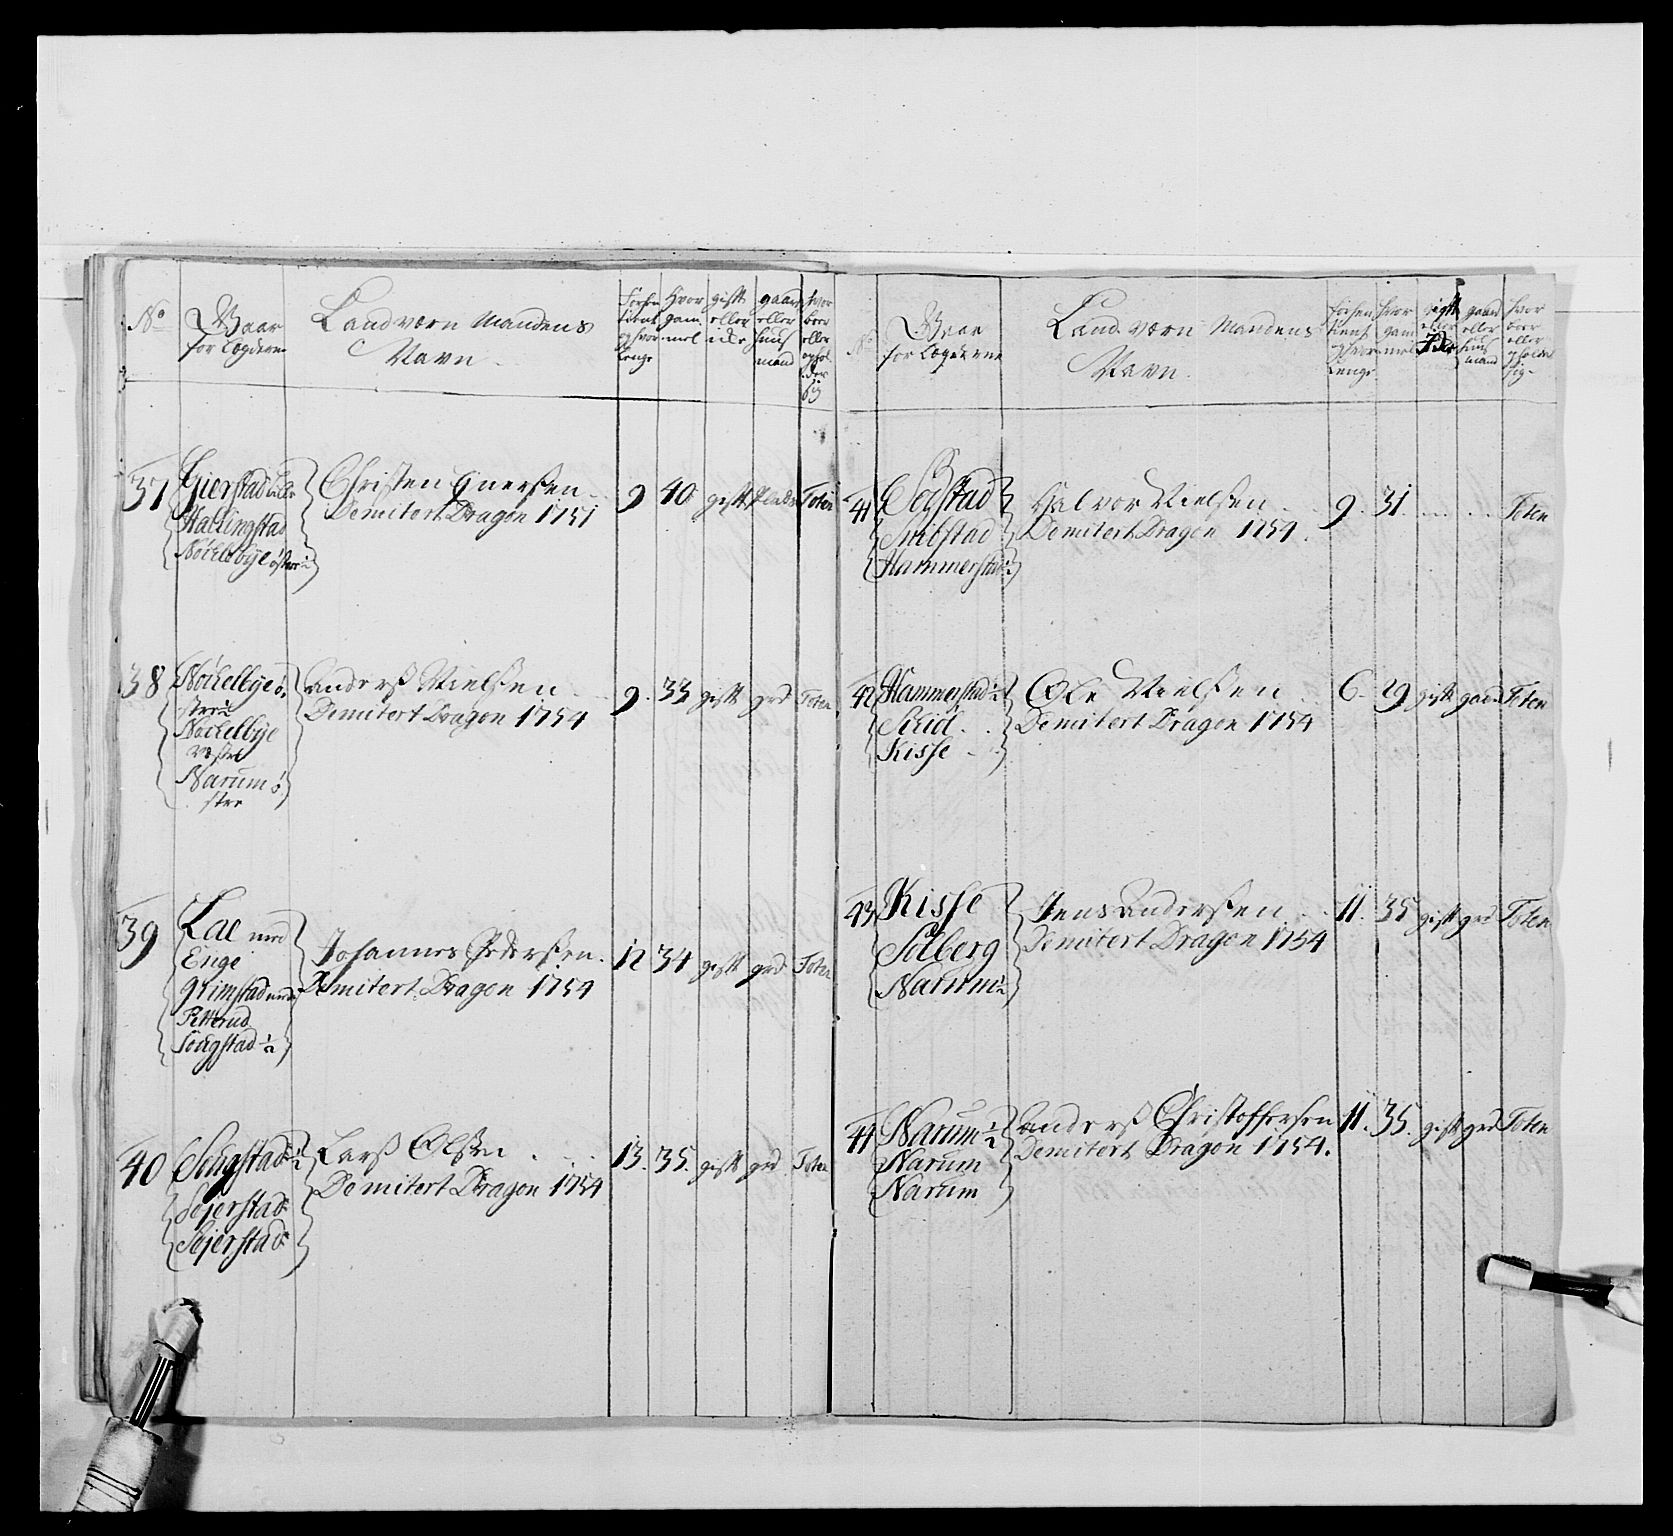 No
Gaar
for Lægderne
Landværn Mandens
Navn
forhen
tient
og hvor
Lenge
Hvor
gam
mel
gift
eller
ide
gaar
eller
huus
mand
hvor
boer
eller
ophol
der
sig
37
Gierstad Lille
Hallingstad
Nøchelbye østre ½
Christen Enersen
Demitert Dragon 1751
9 40 gift Plads Toten
38
Nøchelbye ø
stre ½
Nøchelbye
vestre
Narum ø
stre
Anders Nielsen
Demitert Dragon 1754
9 33 gift grd Toten
39
Lae med
Enge
Grimstad med
Petterud
Sougstad ½
Johannes Pedersen
Demitert Dragon 1754
12 34 gift grd Toten
40
Sougstad ½
Sejerstad
Sejerstad
Lars Olsen
Demitert Dragon 1754
13 35 gift grd Toten
No
Gaar
for Lægderne
Land værn Mandens
Navn
forhen
tient
og hvor
Lenge
hvor
gam
mel
gift
eller
ide
gaard
eller
huus
mand
hvor
boer
eller
opholder
sig
41
Segstad
Snibstad
Hammerstad ½
Halvor Nielsen
Demitert Dragon 1754
9 31 Toten
42
Hammerstad ½
Schid
Kisse
Ole Nielsen
Demitert Dragon 1754
6 29 gift gaard Toten
43
Kisse
Solberg
Narum ½
Jens Andersen
Demitert Dragon 1754
11 35 gift grd Toten
44
Narum ½
Narum
Narum
Anders Christoffersen
Demitert Dragon 1754.
11 35 gift grd Toten